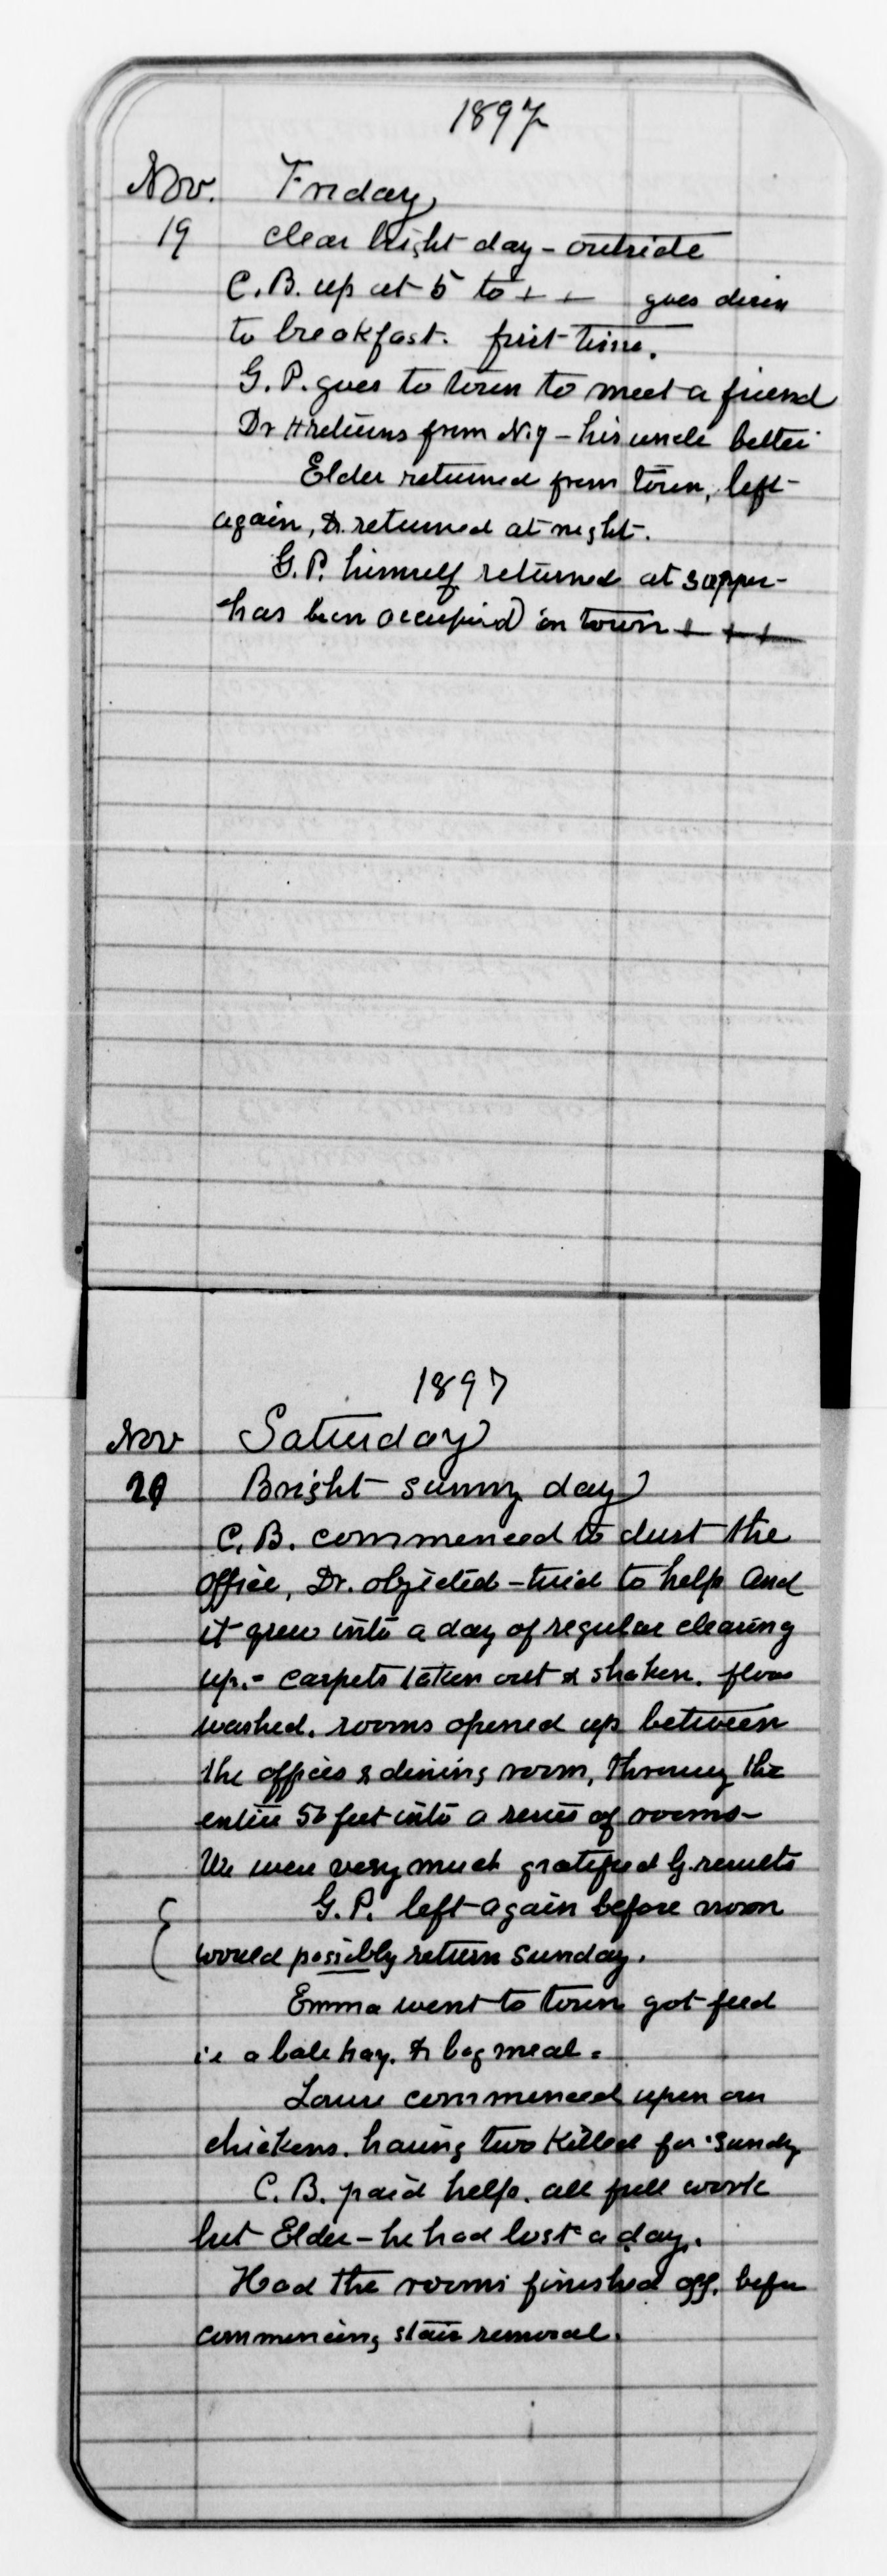 1897
Nov. Friday
19 clear bright day - outside
C.B. up at 5 to + + goes down
to breakfast. first time.
G.P. goes to town to meet a friend
Dr H returns from N.Y - his uncle better
Elder returned from town, left
again, & returned at night.
G.P. himself returned at supper -
has been occupied in town + + +
1897
Nov Saturday
20 Bright sunny day
C.B. commenced to dust the
office, Dr. objected - tried to help and
it grew into a day of regular clearing
up. - carpets taken out & shaken. floors
washed. rooms opened up between
the offices & dining room, throwing the
entire 50 feet into a series of rooms -
We were very much gratified by results
G.P. left again before noon
would possibly return Sunday.
Emma went to town got feed
ie a bale hay. & bag meal.
commenced upon our
chickens. having two killed for Sunday
C.B. paid help. all full work
but Elder - he had lost a day.
Had the rooms finished off. before
commencing stair removal.